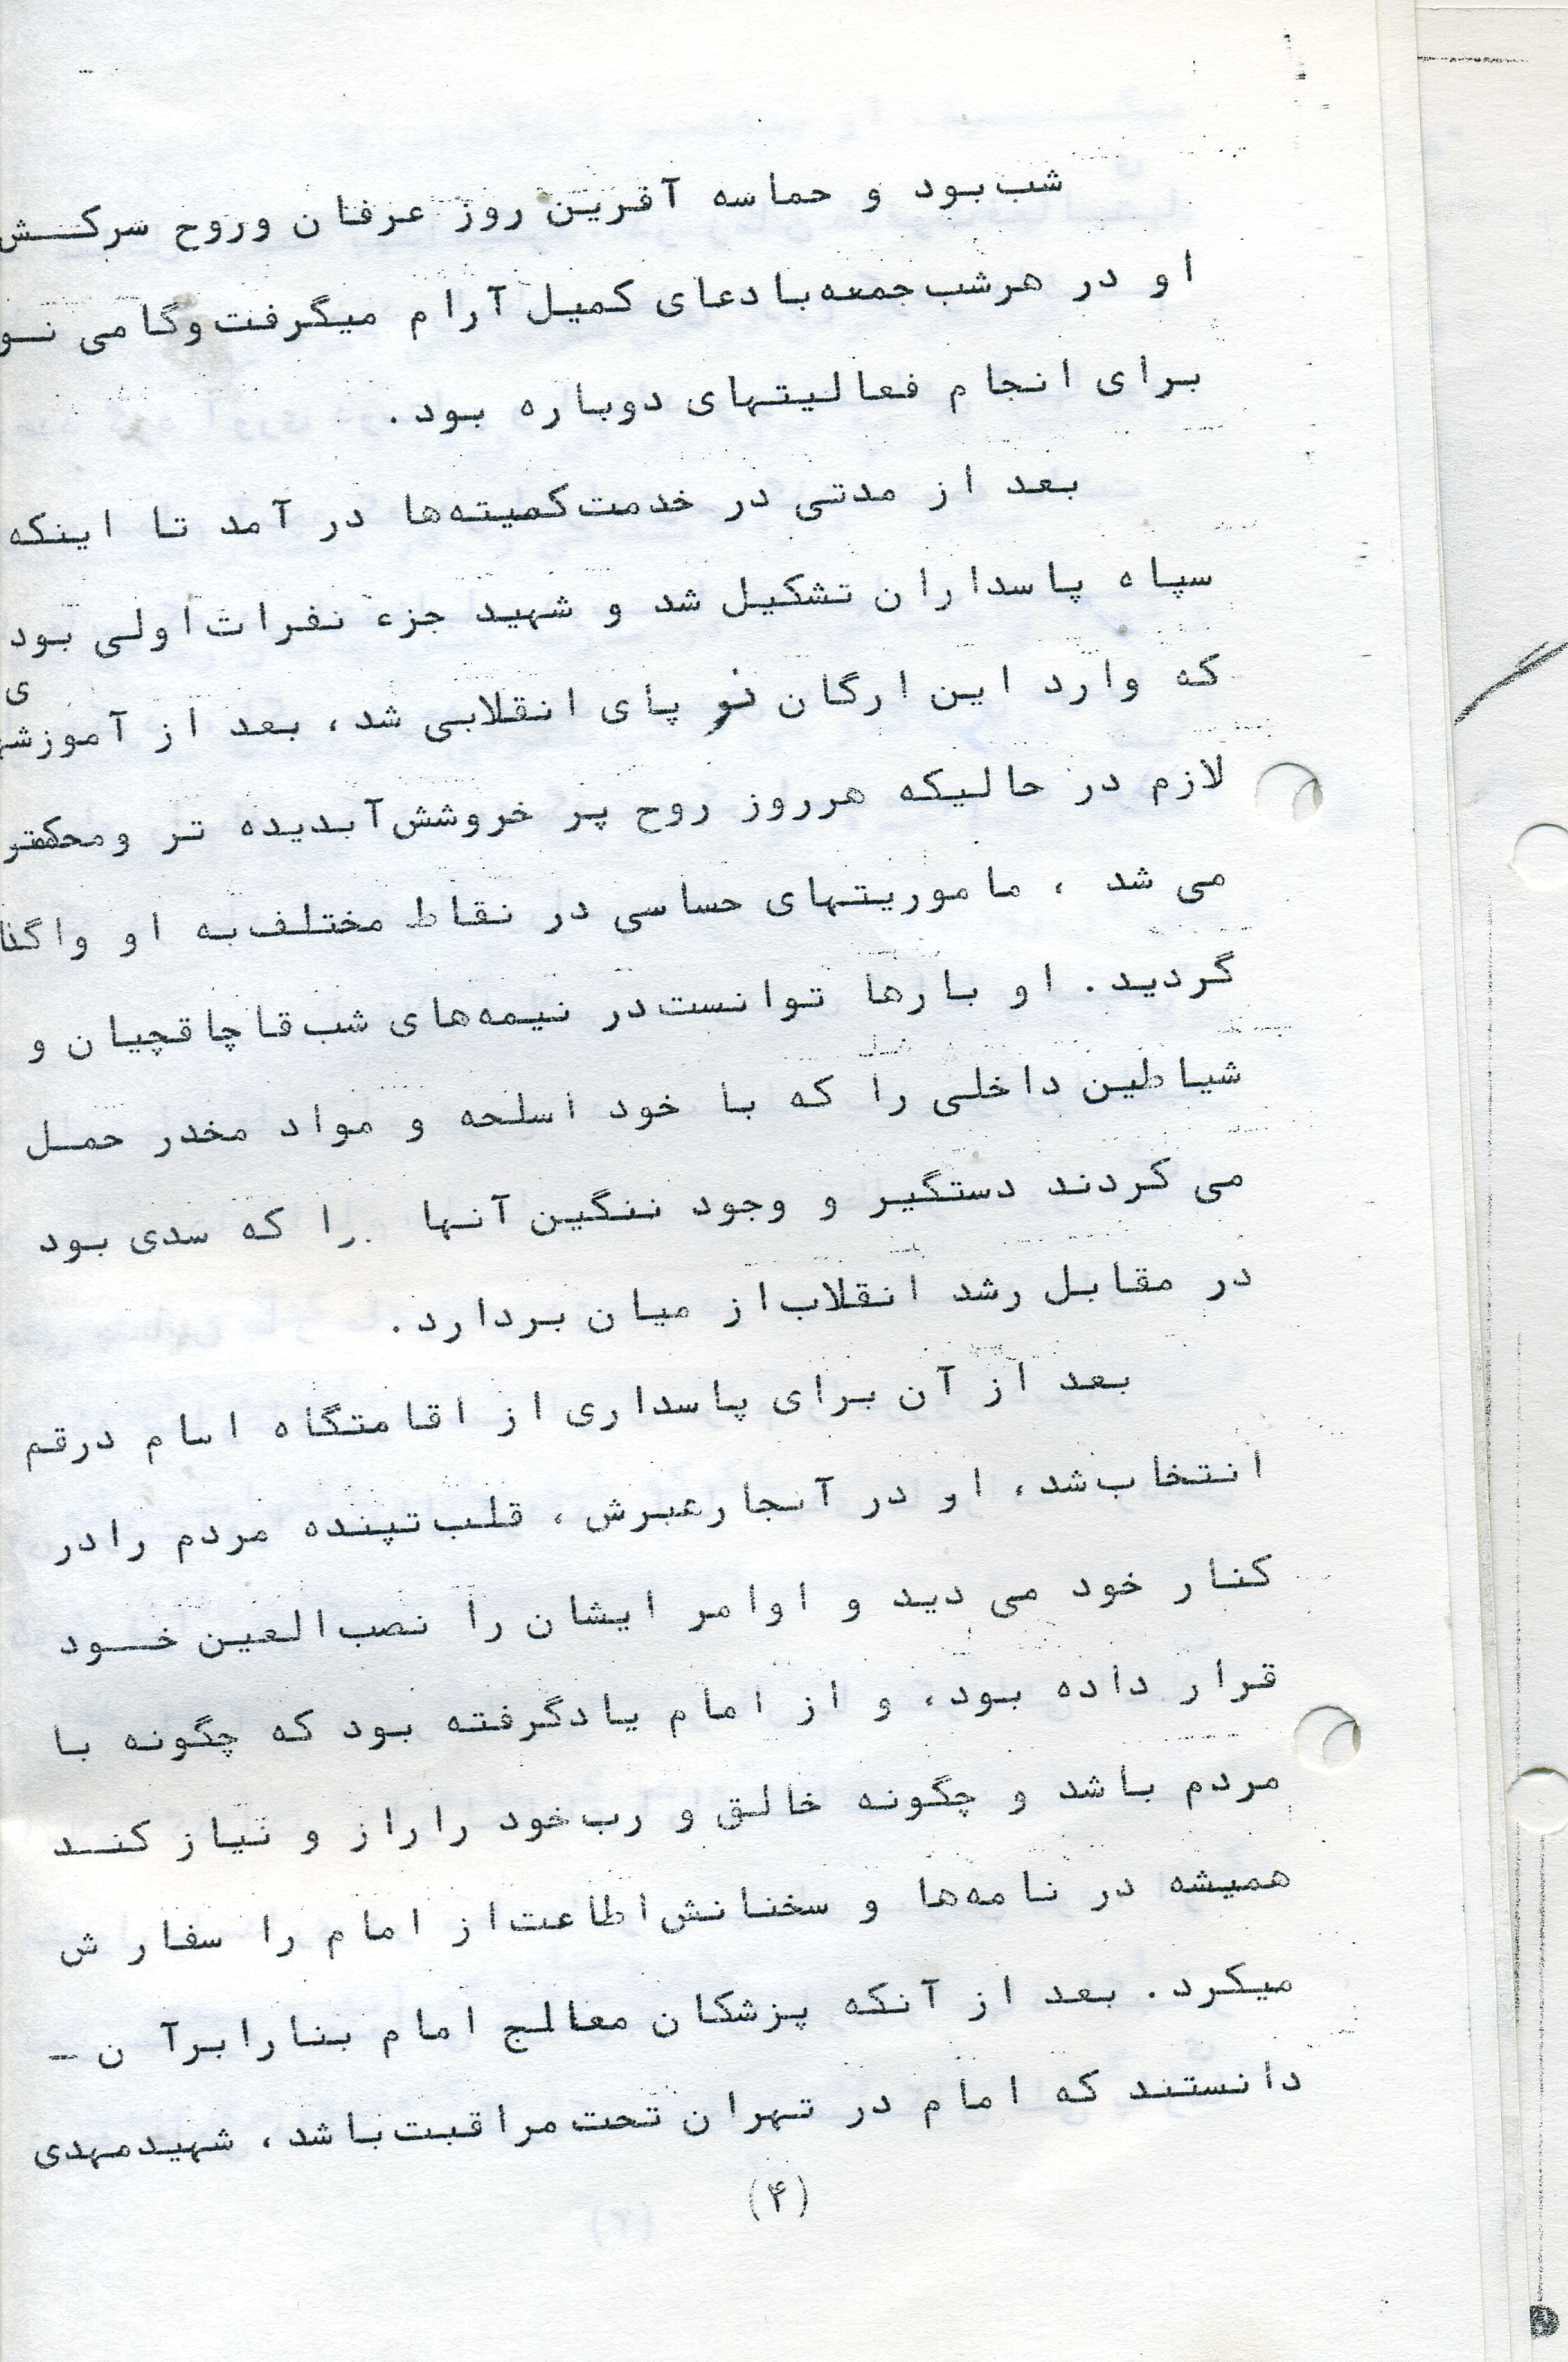 شب بود و حماسه آفرین روز عرفان و روح سرکش
او در هر شب جمعه با دعای کمیل آرام میگرفت و گامی نو
برای انجام فعالیتهای دوباره بود.
بعد از مدتی در خدمت کمیته‌ها در آمد تا اینکه
سپاه پاسداران تشکیل شد و شهید جزء نفرات اولی بود
که وارد این ارگان نو پای انقلابی شد، بعد از آموزشهای
لازم در حالیکه هر روز روح پر خروشش آبدیده تر و محکمتر
می شد ، ماموریتهای حساسی در نقاط مختلف به او
گردید. او بارها توانست در نیمه‌های شب قاچاقچیان و
شیاطین داخلی را که با خود اسلحه و مواد مخدر حمل
می کردند دستگیر و وجود ننگین آنها را که سدی بود
در مقابل رشد انقلاب از میان بردارد.
بعد از آن برای پاسداری از اقامتگاه امام در قم
انتخاب شد، او در آنجا رهبرش ، قلب تپنده مردم را در
کنار خود می دید و اوامر ایشان را نصب العین خود
قرار داده بود، و از امام یاد گرفته بود که چگونه با
مردم باشد و چگونه خالق و رب خود را راز و نیاز کند
همیشه در نامه‌ها و سخنانش اطاعت از امام را سفارش
میکرد. بعد از آنکه پزشکان معالج امام بنا را بر آن -
دانستند که امام در تهران تحت مراقبت باشد، شهید مهدی
(۴)